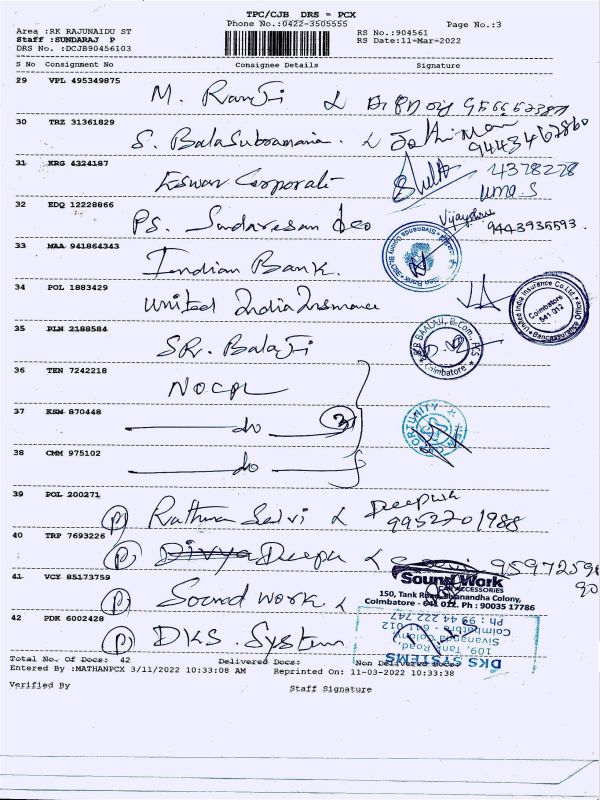 TPC/CJB DRS = PCX
Phone No.:0422-3505555
Page No.:3
Area :RK RAJUNAIDU ST
Staff :SUNDARAJ P
DRS No. :DCJB90456103
RS No.:904561
RS Date:11-Mar-2022
S No Consignment No Consignee Details Signature
29 VPL 495349875 M. Ramji &
30 TRZ 31361829 S. Balasubramania. & Jothimani
9443462860
31 KRG 4324187 Eswar Corporati 4378228
uma.S
32 EDQ 12228866 PS. Sundaresan Vijayshree 9443935593.
33 MAA 941864343 Indian Bank.
34 POL 1883429 United India Insurance
United India Insurance Co.Ltd.
Coimbatore
641 012
Bancassurance Office
35 PLN 2188584 SR. Balaji
SR BAALAJI, B.Com.,
Coimbatore
36 TEN 7242218 NOCPL
37 KSM 870448 do 3
38 CMM 975102 do
39 POL 200271 (P) Rathna Selvi & Deepika
9952701988
40 TRP 7693226 (P) Divya Deepa &
41 VCY 85173759 (P) Sound work &
Sound Work
CAR ACCESSORIES
150, Tank Road, Sivanandha Colony,
Coimbatore - 641 012. Ph : 90035 17786
42 PDK 6002428 (P) DKS. System
DKS SYSTEMS
109, Tank Road,
Sivananda Colony,
Coimbatore - 641 012
Ph : 99 44 222 747
Total No. Of Docs: 42 Delivered Docs: Non Delivered Docs:
Entered By :MATHANPCX 3/11/2022 10:33:08 AM Reprinted On: 11-03-2022 10:33:38
Verified By Staff Signature